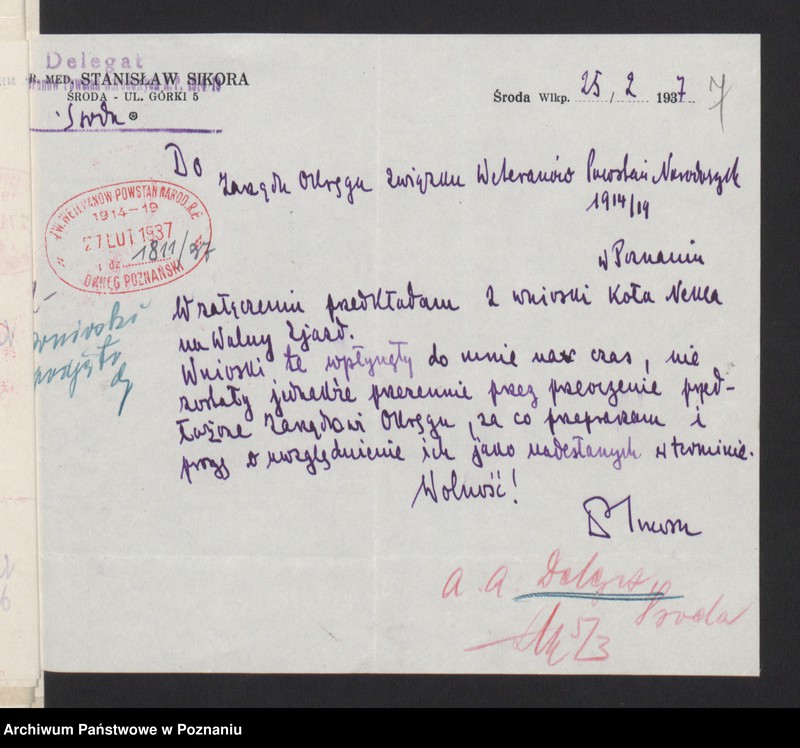 Delegat
R. MED. STANISŁAW SIKORA
ŚRODA - UL. GÓRKI 5
Środa
Środa Wlkp. 25/2 1937
7
Do
Zarządu Okręgu Związku Weteranów Powstań Narodowych
1914/19
w Poznaniu
ZW. WETERANÓW POWSTAŃ NAROD. R.P.
1914-19
27 LUT 1937
l. dz. 1811/37
OKRĘG POZNAŃSKI
W załączeniu przedkładam 2 wnioski Koła Nekla
na Walny Zjazd.
Wnioski te wpłynęły do mnie na czas, nie
zostały jednakże przezemnie przez przeoczenie przed-
łożone Zarządowi Okręgu, za co przepraszam i
proszę o uwzględnienie ich jako nadesłanych w terminie.
Wolność!
a. a. Delegat
Środa
5/3
Archiwum Państwowe w Poznaniu